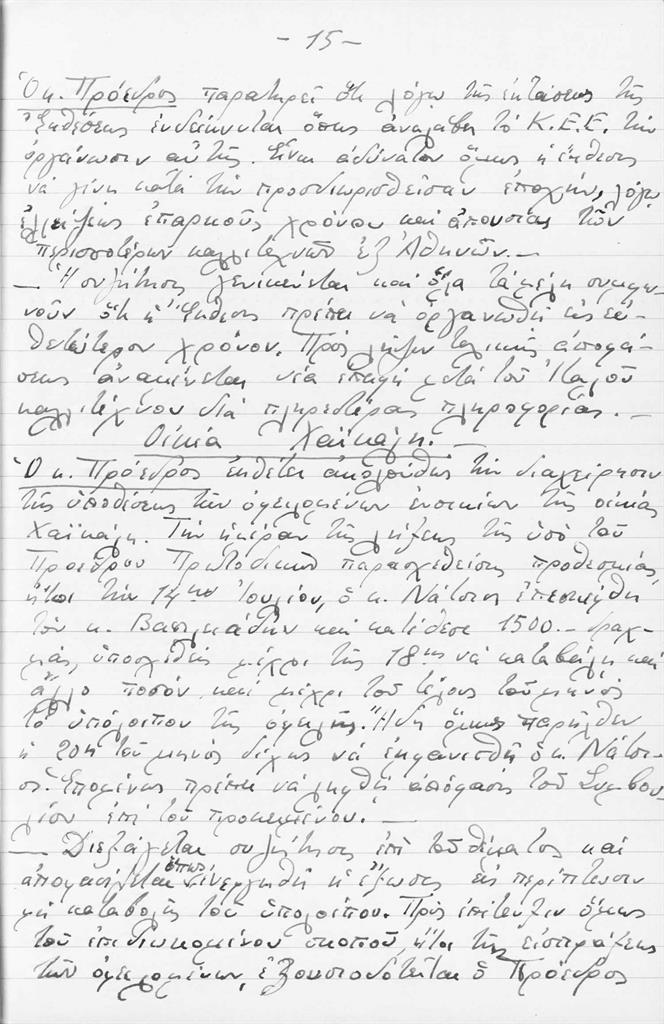 - 15 -
Ὁ κ. Πρόεδρος παρατηρεῖ ὅτι λόγῳ τῆς ἐκτάσεως τῆς
Ἐκθέσεως ἐνδείκνυται ὅπως ἀναλάβῃ τὸ Κ.Ε.Ε. τὴν
ὀργάνωσιν αὐτῆς. Εἶναι ἀδύνατον ὅμως ἡ ἔκθεσις
νὰ γίνῃ κατὰ τὴν προσδιορισθεῖσαν ἐποχήν, λόγῳ
ἐλλείψεως ἐπαρκοῦς χρόνου καὶ ἀπουσίας τῶν
περισσοτέρων καλλιτεχνῶν ἐξ Ἀθηνῶν. -
- Ἡ συζήτησις γενικεύεται καὶ ὅλα τὰ μέλη συμφω-
νοῦν ὅτι ἡ Ἔκθεσις πρέπει νὰ ὀργανωθῇ εἰς εὐ-
θετώτερον χρόνον. Πρὸς λῆψιν τελικῆς ἀποφά-
σεως ἀναμένεται νέα ἐπαφὴ μετὰ τοῦ Ἰταλοῦ
καλλιτέχνου διὰ πληρεστέρας πληροφορίας. -
Οἰκία Χαϊκάλη. -
Ὁ κ. Πρόεδρος ἐκθέτει ἀκολούθως τὴν διαχείρησιν
τῆς ὑποθέσεως τῶν ὀφειλομένων ἐνοικίων τῆς οἰκίας
Χαϊκάλη. Τὴν ἡμέραν τῆς λήξεως τῆς ὑπὸ τοῦ
Προέδρου Πρωτοδικῶν παρασχεθείσης προθεσμίας,
ἤτοι τὴν 14ην Ἰουλίου, ὁ κ. Νάτσης ἐπεσκέφθη
τὸν κ. Βασιλειάδην καὶ κατέθεσε 1500.- δραχ-
μάς, ὑποσχεθεὶς μέχρι τῆς 18ης νὰ καταβάλῃ καὶ
ἄλλο ποσὸν καὶ μέχρι τοῦ τέλους τοῦ μηνὸς
τὸ ὑπόλοιπον τῆς ὀφειλῆς. Ἤδη ὅμως παρῆλθεν
ἡ 20ὴ τοῦ μηνὸς δίχως νὰ ἐμφανισθῇ ὁ κ. Νάτσι-
σς. Ἑπομένως πρέπει νὰ ληφθῇ ἀπόφασις τοῦ Συμβου-
λίου ἐπὶ τοῦ προκειμένου. -
- Διεξάγεται συζήτησις ἐπὶ τοῦ θέματος καὶ
ἀποφασίζεται ὅπως ἐνεργηθῇ ἡ ἔξωσις εἰς περίπτωσιν
μὴ καταβολῆς τοῦ ὑπολοίπου. Πρὸς ἐπίτευξιν ὅμως
τοῦ ἐπιδιωκομένου σκοποῦ, ἤτοι τῆς εἰσπράξεως
τῶν ὀφειλομένων, ἐξουσιοδοτεῖται ὁ Πρόεδρος